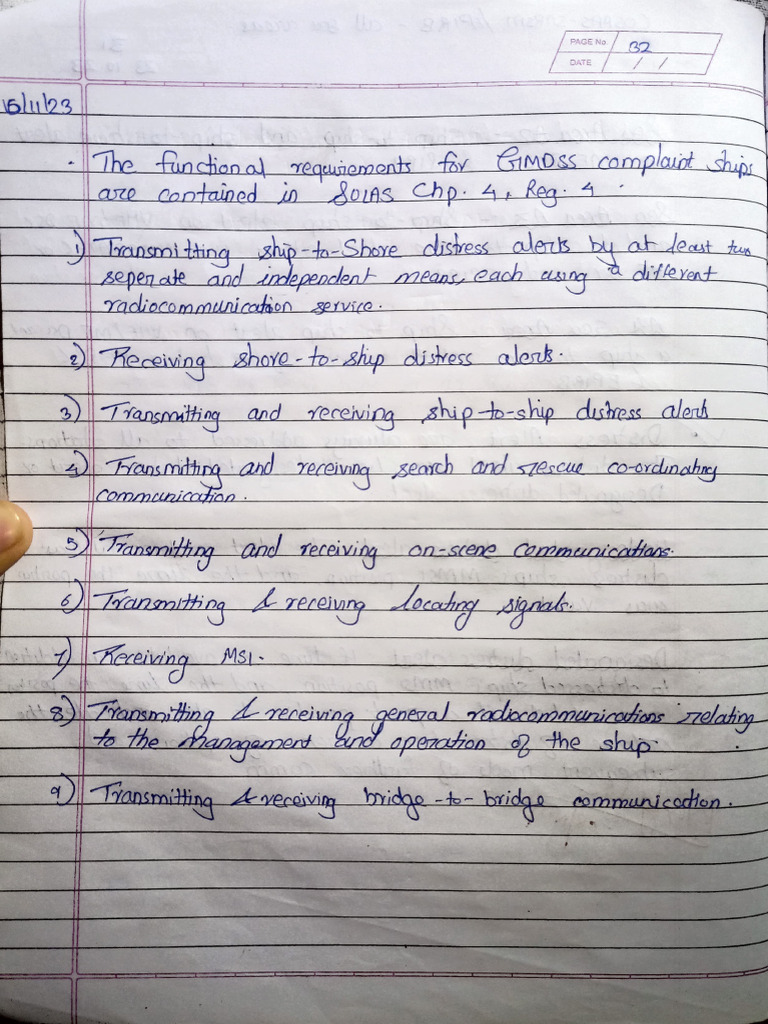 PAGE No 32
DATE / /
15/11/23
· The functional requirements for GMDSS complaint ships
are contained in SOLAS Chp. 4, Reg. 4.
1) Transmitting ship-to-Shore distress alerts by at least two
seperate and independent means, each using a different
radiocommunication service.
2) Receiving shore-to-ship distress alerts.
3) Transmitting and receiving ship-to-ship distress alerts
4) Transmitting and receiving search and rescue co-ordinating
communication.
5) Transmitting and receiving on-scene communications.
6) Transmitting & receiving locating signals.
7) Receiving MSI.
8) Transmitting & receiving general radiocommunications relating
to the management and operation of the ship.
9) Transmitting & receiving bridge-to-bridge communication.